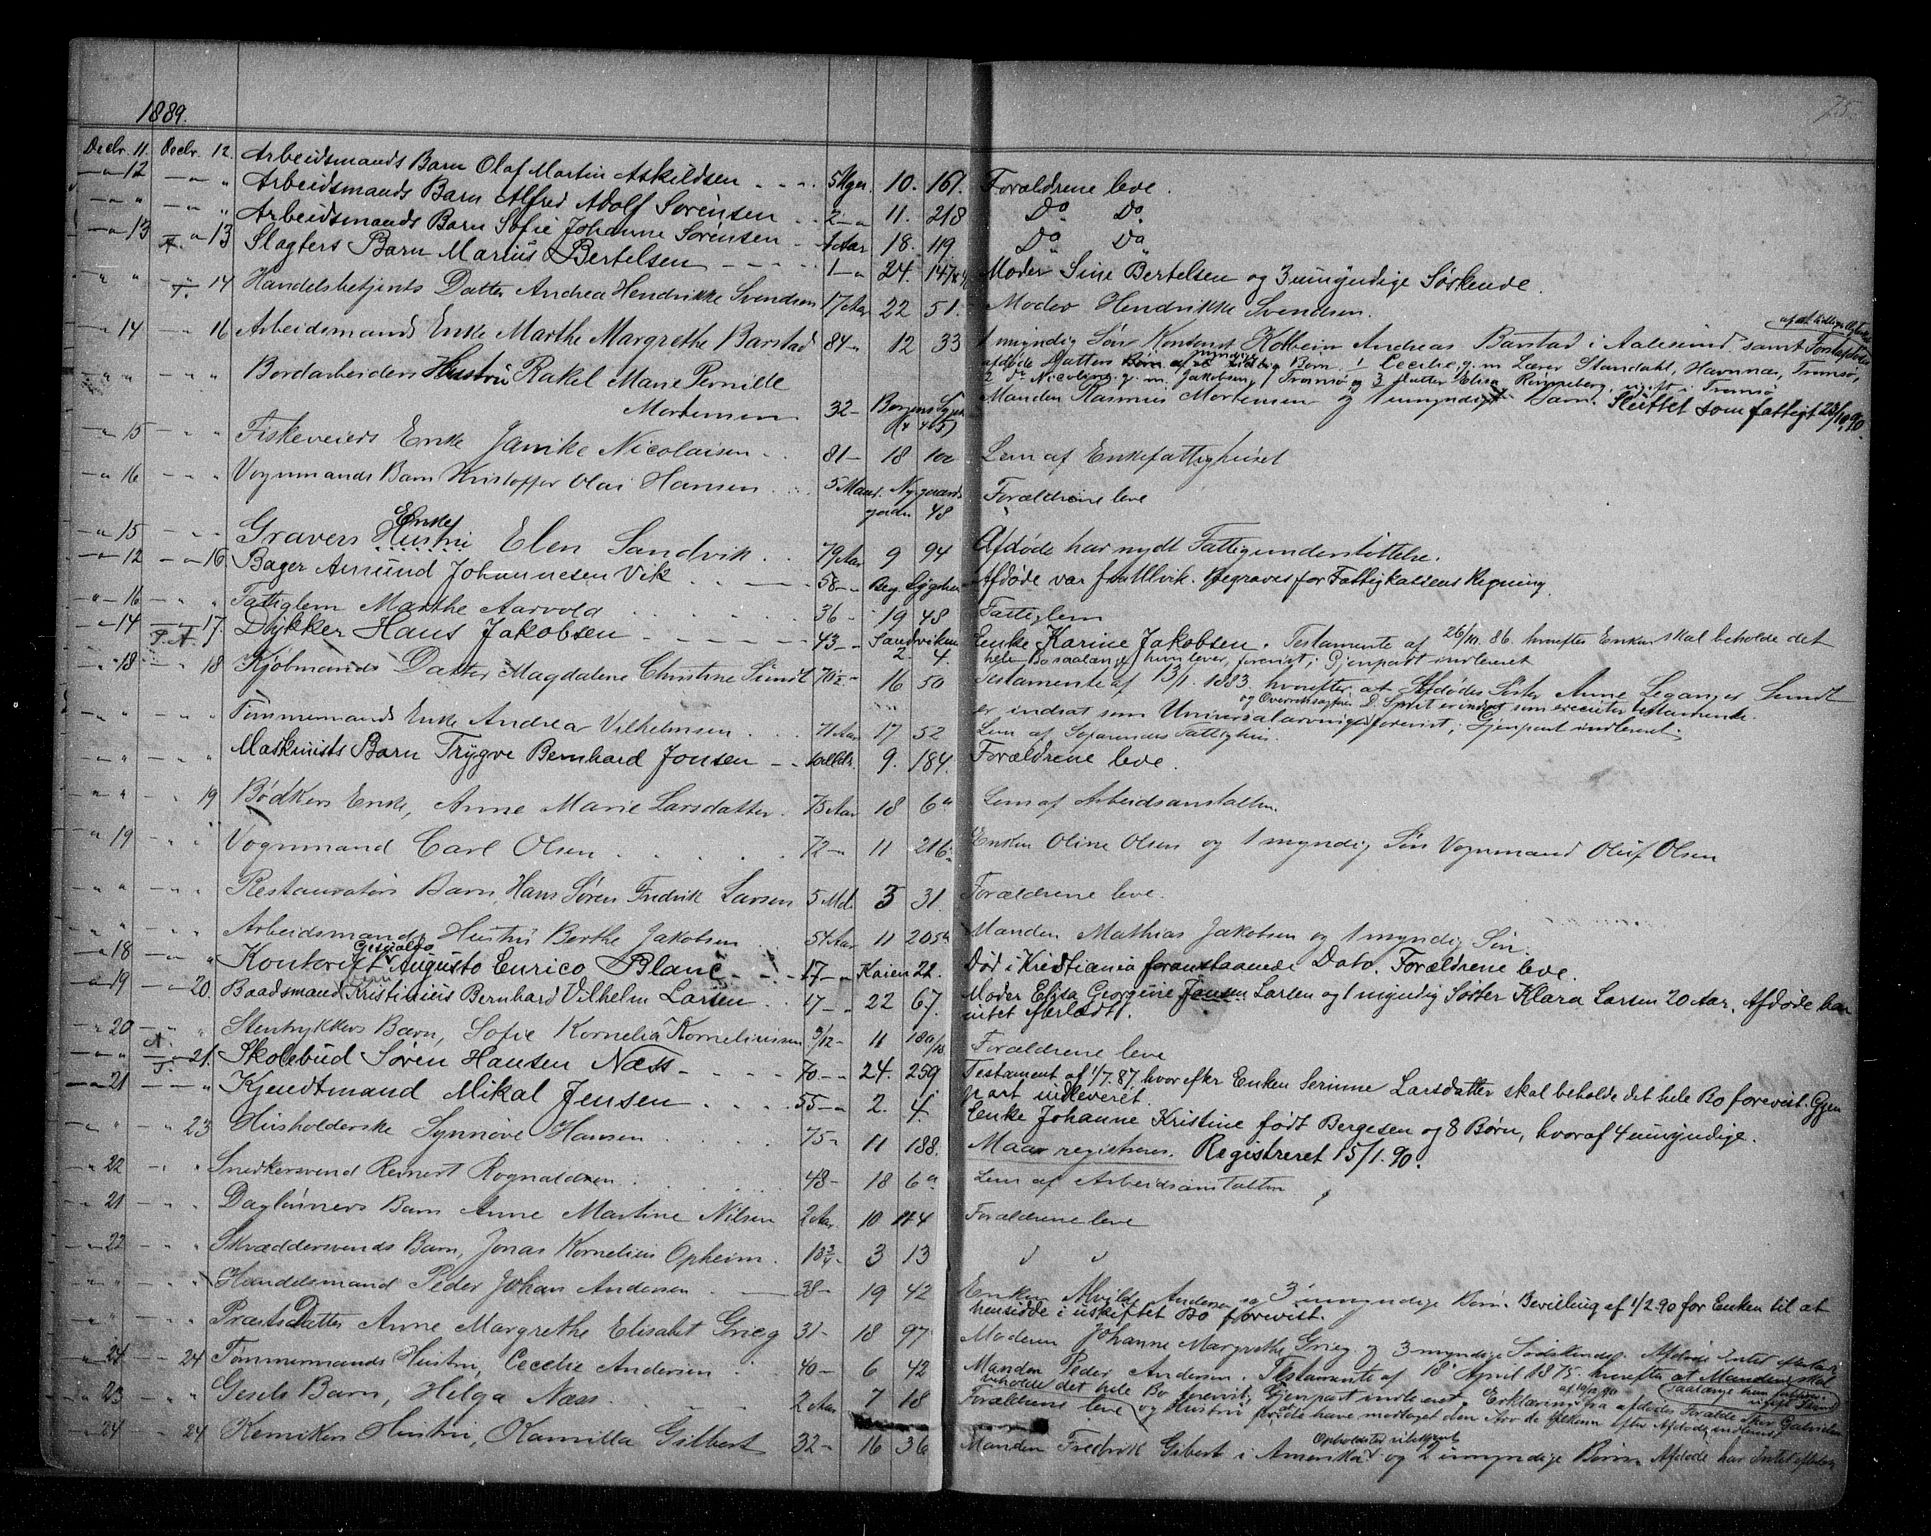 1889.
75.
Decbr. 11. Decbr. 12. Arbeidsmands Barn Olaf Martin Askildsen 5 Mgr. 10. 161. Forældrene leve.
12 " Arbeidsmands Barn Alfred Adolf Sørensen 2 " 11. 218 Do. Do.
" " Arbeidsmands Barn Sofie Johanne Sørensen 1 Aar 18. 119 Do. Do.
13 13 Slagters Barn Marius Bertelsen 1 " 24. Moder Sine Bertelsen og 3 umyndige Søskende.
" 14 Handelsbetjents Datter Andrea Hendrikke Svendsen 17 Aar 22 51. Moder Hendrikke Svendsen.
14 16 Arbeidsmands Enke Marthe Margrethe Barstad 84 12 33 1 myndig Søn Kolbein Andreas Barstad i Aalesund samt
afdøde Datters myndige Børn. 1 Cecilie g. m. Lærer Standahl, Havnnæs, Tromsø,
2 Do Nicoline g. m. Jakobsen, Tromsø og 3 Elisa Rinneberg, ugift i Tromsø
" " Bordarbeiders Hustru Rakel Marie Pernille
Mortensen 32 Manden Rasmus Mortensen og 1 umyndigt Barn. Sluttet som fattigt 23/10 90.
15 " Fiskeveiers Enke Janike Nicolaisen 81 18 Lem af Enkefattighuset
16 " Vognmands Barn Kristoffer Olai Hansen 5 Maan. Nygaards
gaden 48 Forældrene leve
15 " Gravers Enke Hustru Elen Sandvik 79 Aar 9 94 Afdøde har nydt Fattigunderstøttelse.
12 16 Bager Amund Johannesen Vik 58 Afdøde var fra Ulvik. Begraves for Fattigkassens Regning.
16 " Fattiglem Marthe Aarvold 36 19 48 Fattiglem
14 17. Dykker Hans Jakobsen 43 Sandviken 2. 4. Enke Karine Jakobsen. Testamente af 26/10 86 hvorefter Enken skal beholde det
hele Bo saalænge hun lever, forevist; Gjenpart indleveret
18 18 Kjøbmands Datter Magdalene Christine Sundt 70½ 16 50 Testamente af 13/1 1883 hvorefter Afdødes Søster Anne Leganger Sundt
er indsat som Universalarving forevist; Gjenpart indleveret.
" " Tømmermands Enke Andrea Vilhelmsen 71 Aar 17 52 Lem af Søfarendes Fattighus.
" " Maskinists Barn Trygve Bernhard Jonsen 9. 184. Forældrene leve.
" 19 Bødkers Enke, Anne Marie Larsdatter 75 Aar 18 6a Lem af Arbeidsanstalten.
19 " Vognmand Carl Olsen 72 11 216 Enken Oline Olsen og 1 myndig Søn Vognmand Oluf Olsen
" " Restauratørs Barn, Hans Søren Fredrik Larsen 5 Md. 3 31. Forældrene leve.
" " Arbeidsmands Hustru Berthe Jakobsen 54 Aar 11 205a Manden Mathias Jakobsen og 1 myndig Søn.
18 " Kontorist Gesualdo Augusto Enrico Blanc 17 Kaien 22. Død i Kristiania foranstaaende Dato. Forældrene leve.
19 20. Baadsmand Kristinius Bernhard Vilhelm Larsen 17 22 67. Moder Elisa Georgine Larsen og 1 myndig Søster Klara Larsen 20 Aar. Afdøde har
intet efterladt.
20 " Stentrykkers Barn, Sofie Kornelia Korneliussen 11 Forældrene leve
" 21. Skolebud Søren Hansen Næss 70 24. 259 Testament af 1/7. 87, hvorefter Enken Serinne Larsdatter skal beholde det hele Bo forevist. Gjen
part indleveret.
21 " Kjendtmand Mikal Jensen 55 2. 4. Enke Johanne Kristine født Bergesen og 8 Børn, hvoraf 4 umyndige.
" 23 Husholderske Synnøve Hansen 75 11 188. Maa registreres. Registreret 15/1. 90.
22 " Snedkersvend Reinert Rognaldsen 48 18 6a Lem af Arbeidsanstalten
21 " Dagleiners Barn Anne Martine Nilsen 2 Aar 10 114 Forældrene leve
22 " Skræddersvends Barn, Jonas Kornelius Opheim 1¾ 3 13
" " Handelsmand Peder Johan Andersen 38 19 42 Enken Andersen og 3 umyndige Børn. Bevilling af 1/2.90 for Enken til at
hensidde i uskiftet Bo forevist.
" " Præsts Datter Anne Margrethe Elisabet Grieg 31 18 97 Moderen Johanne Margrethe Grieg og 3 myndige Sødskende. Afdøde
24 24 Tømmermands Hustru, Cecilie Andersen 40 6 42 Manden Peder Andersen. Testamente af 18 April 1875 hvorefter at Manden skal
beholde det hele Bo forevist; Gjenpart indleveret.
23 " Gesels Barn, Helga Næss 2 Aar 7 18 Forældrene leve
24 24 Kemikers Hustru, Kamilla Gilbert 32 16 36 Manden Fredrik Gilbert i Amerika og 2 umyndige Børn. Afdøde har Intet